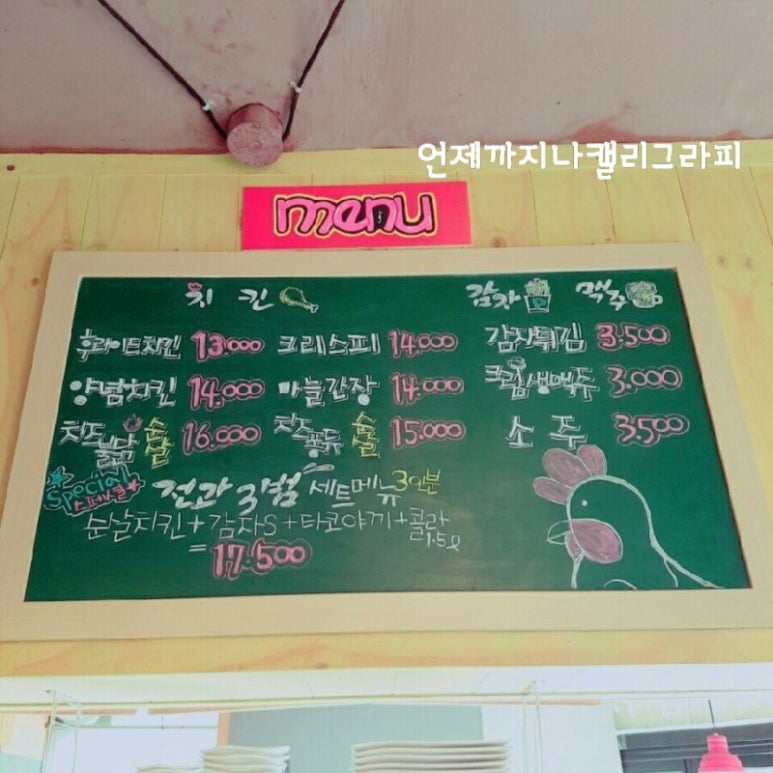 언제까지나캘리그라피
menu
치킨
감자 맥주
후라이드치킨 13.000 크리스피 14.000 감자튀김 3.500
양념치킨 14.000 마늘간장 14.000 크림생맥주 3.000
치즈불닭 순살 16.000 치즈퐁듀 순살 15.000 소주 3.500
Special! 스페셜 전과 3범 세트메뉴 3인분
순살치킨+감자S+타코야끼+콜라 1.5l
= 17.500